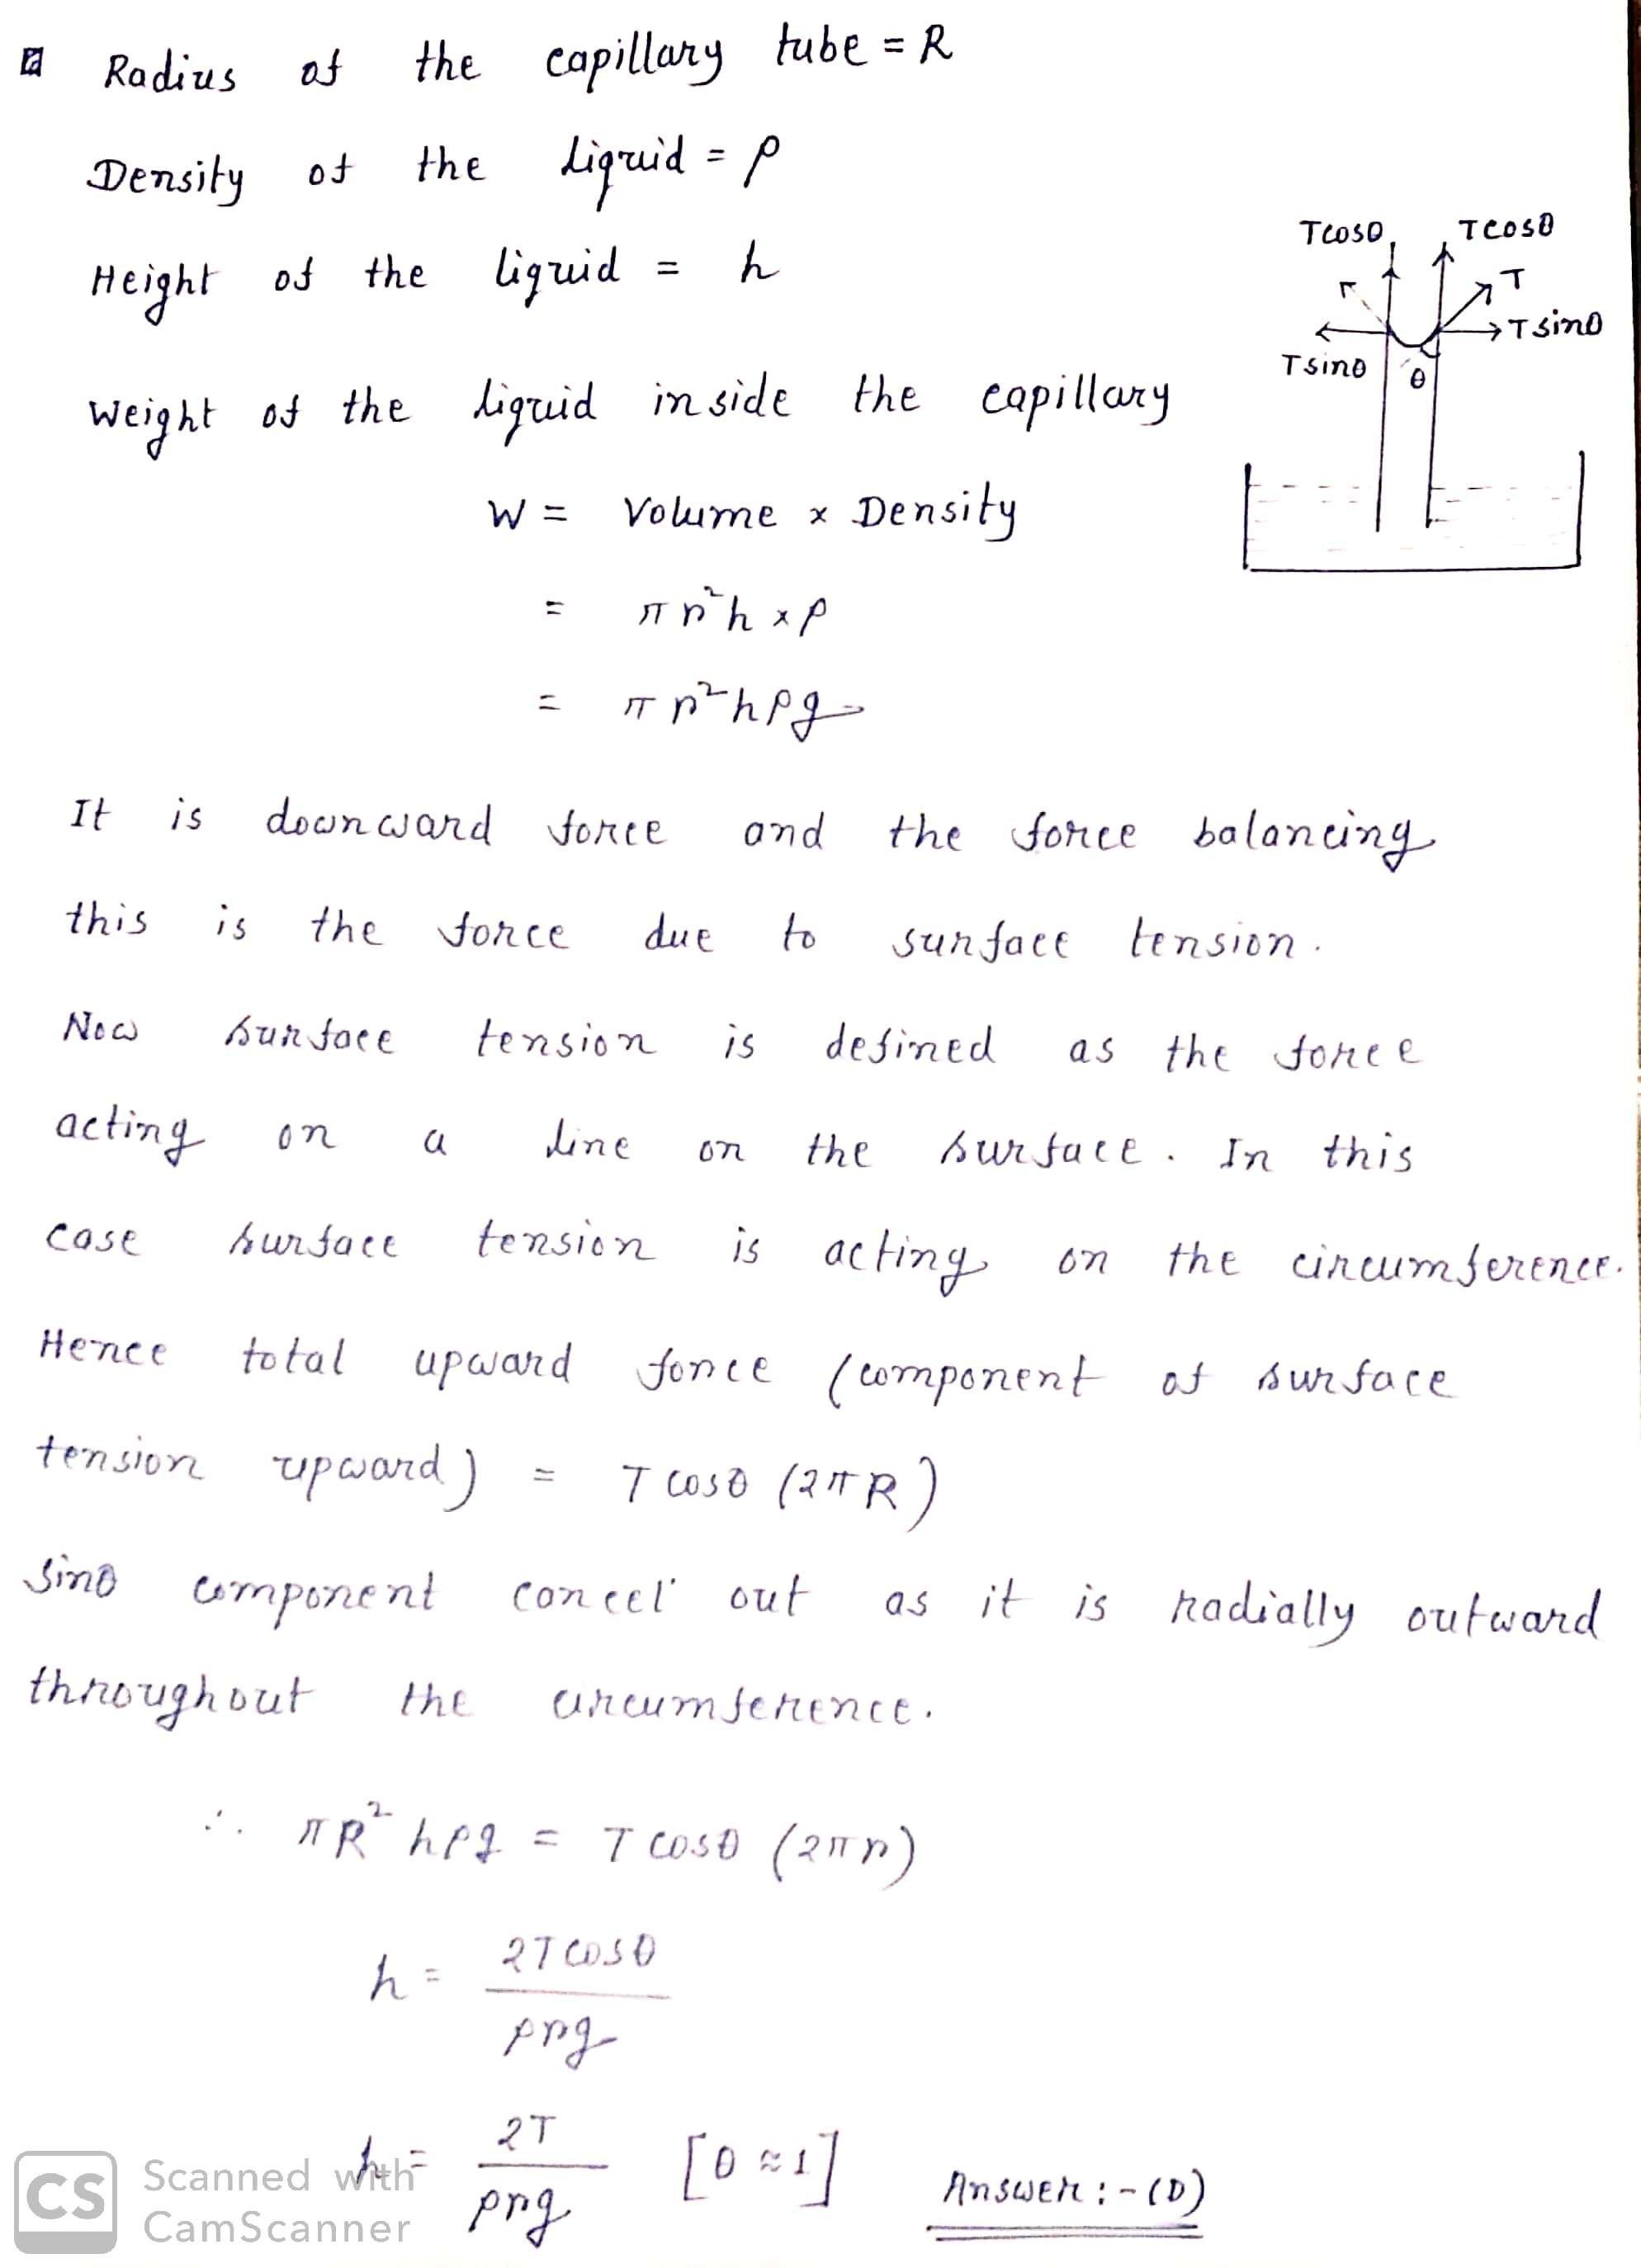 Radius of the capillary tube = R
Density of the liquid = ρ
Height of the liquid = h
Tcosθ Tcosθ
T
Tsinθ
Tsinθ
θ
Weight of the liquid inside the capillary
W = Volume × Density
= πr²h × ρ
= πr²hρg
It is downward force and the force balancing
this is the force due to surface tension.
Now surface tension is defined as the force
acting on a line on the surface. In this
case surface tension is acting on the circumference.
Hence total upward force (component of surface
tension upward) = T cosθ (2πR)
Sinθ component concel out as it is radially outward
throughout the circumference.
∴ πR² hρg = T cosθ (2πr)
h = 2T cosθ / ρrg
h = 2T / ρrg [θ ≈ 1] Answer :- (D)
CS Scanned with
CamScanner